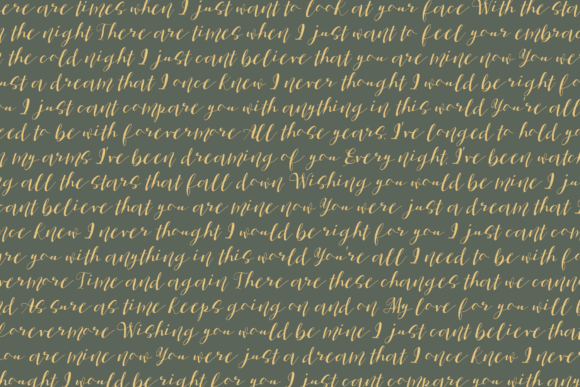 ere are times when I just want to look at your face With the sta
n the night There are times when I just want to feel your embrac
the cold night I just cant believe that you are mine now You we
ust a dream that I once knew I never thought I would be right fo
ou I just cant compare you with anything in this world You're all
eed to be with forevermore All those years, I've longed to hold yo
n my arms I've been dreaming of you Every night, I've been watc
ng all the stars that fall down Wishing you would be mine I ju
cant believe that you are mine now You were just a dream that
nce knew I never thought I would be right for you I just cant com
are you with anything in this world You're all I need to be with fo
vermore Time and again There are these changes that we cann
nd As sure as time keeps going on and on My love for you will
forevermore Wishing you would be mine I just cant believe tha
ou are mine now You were just a dream that I once knew I never
hought I would be right for you I just cant compare you with